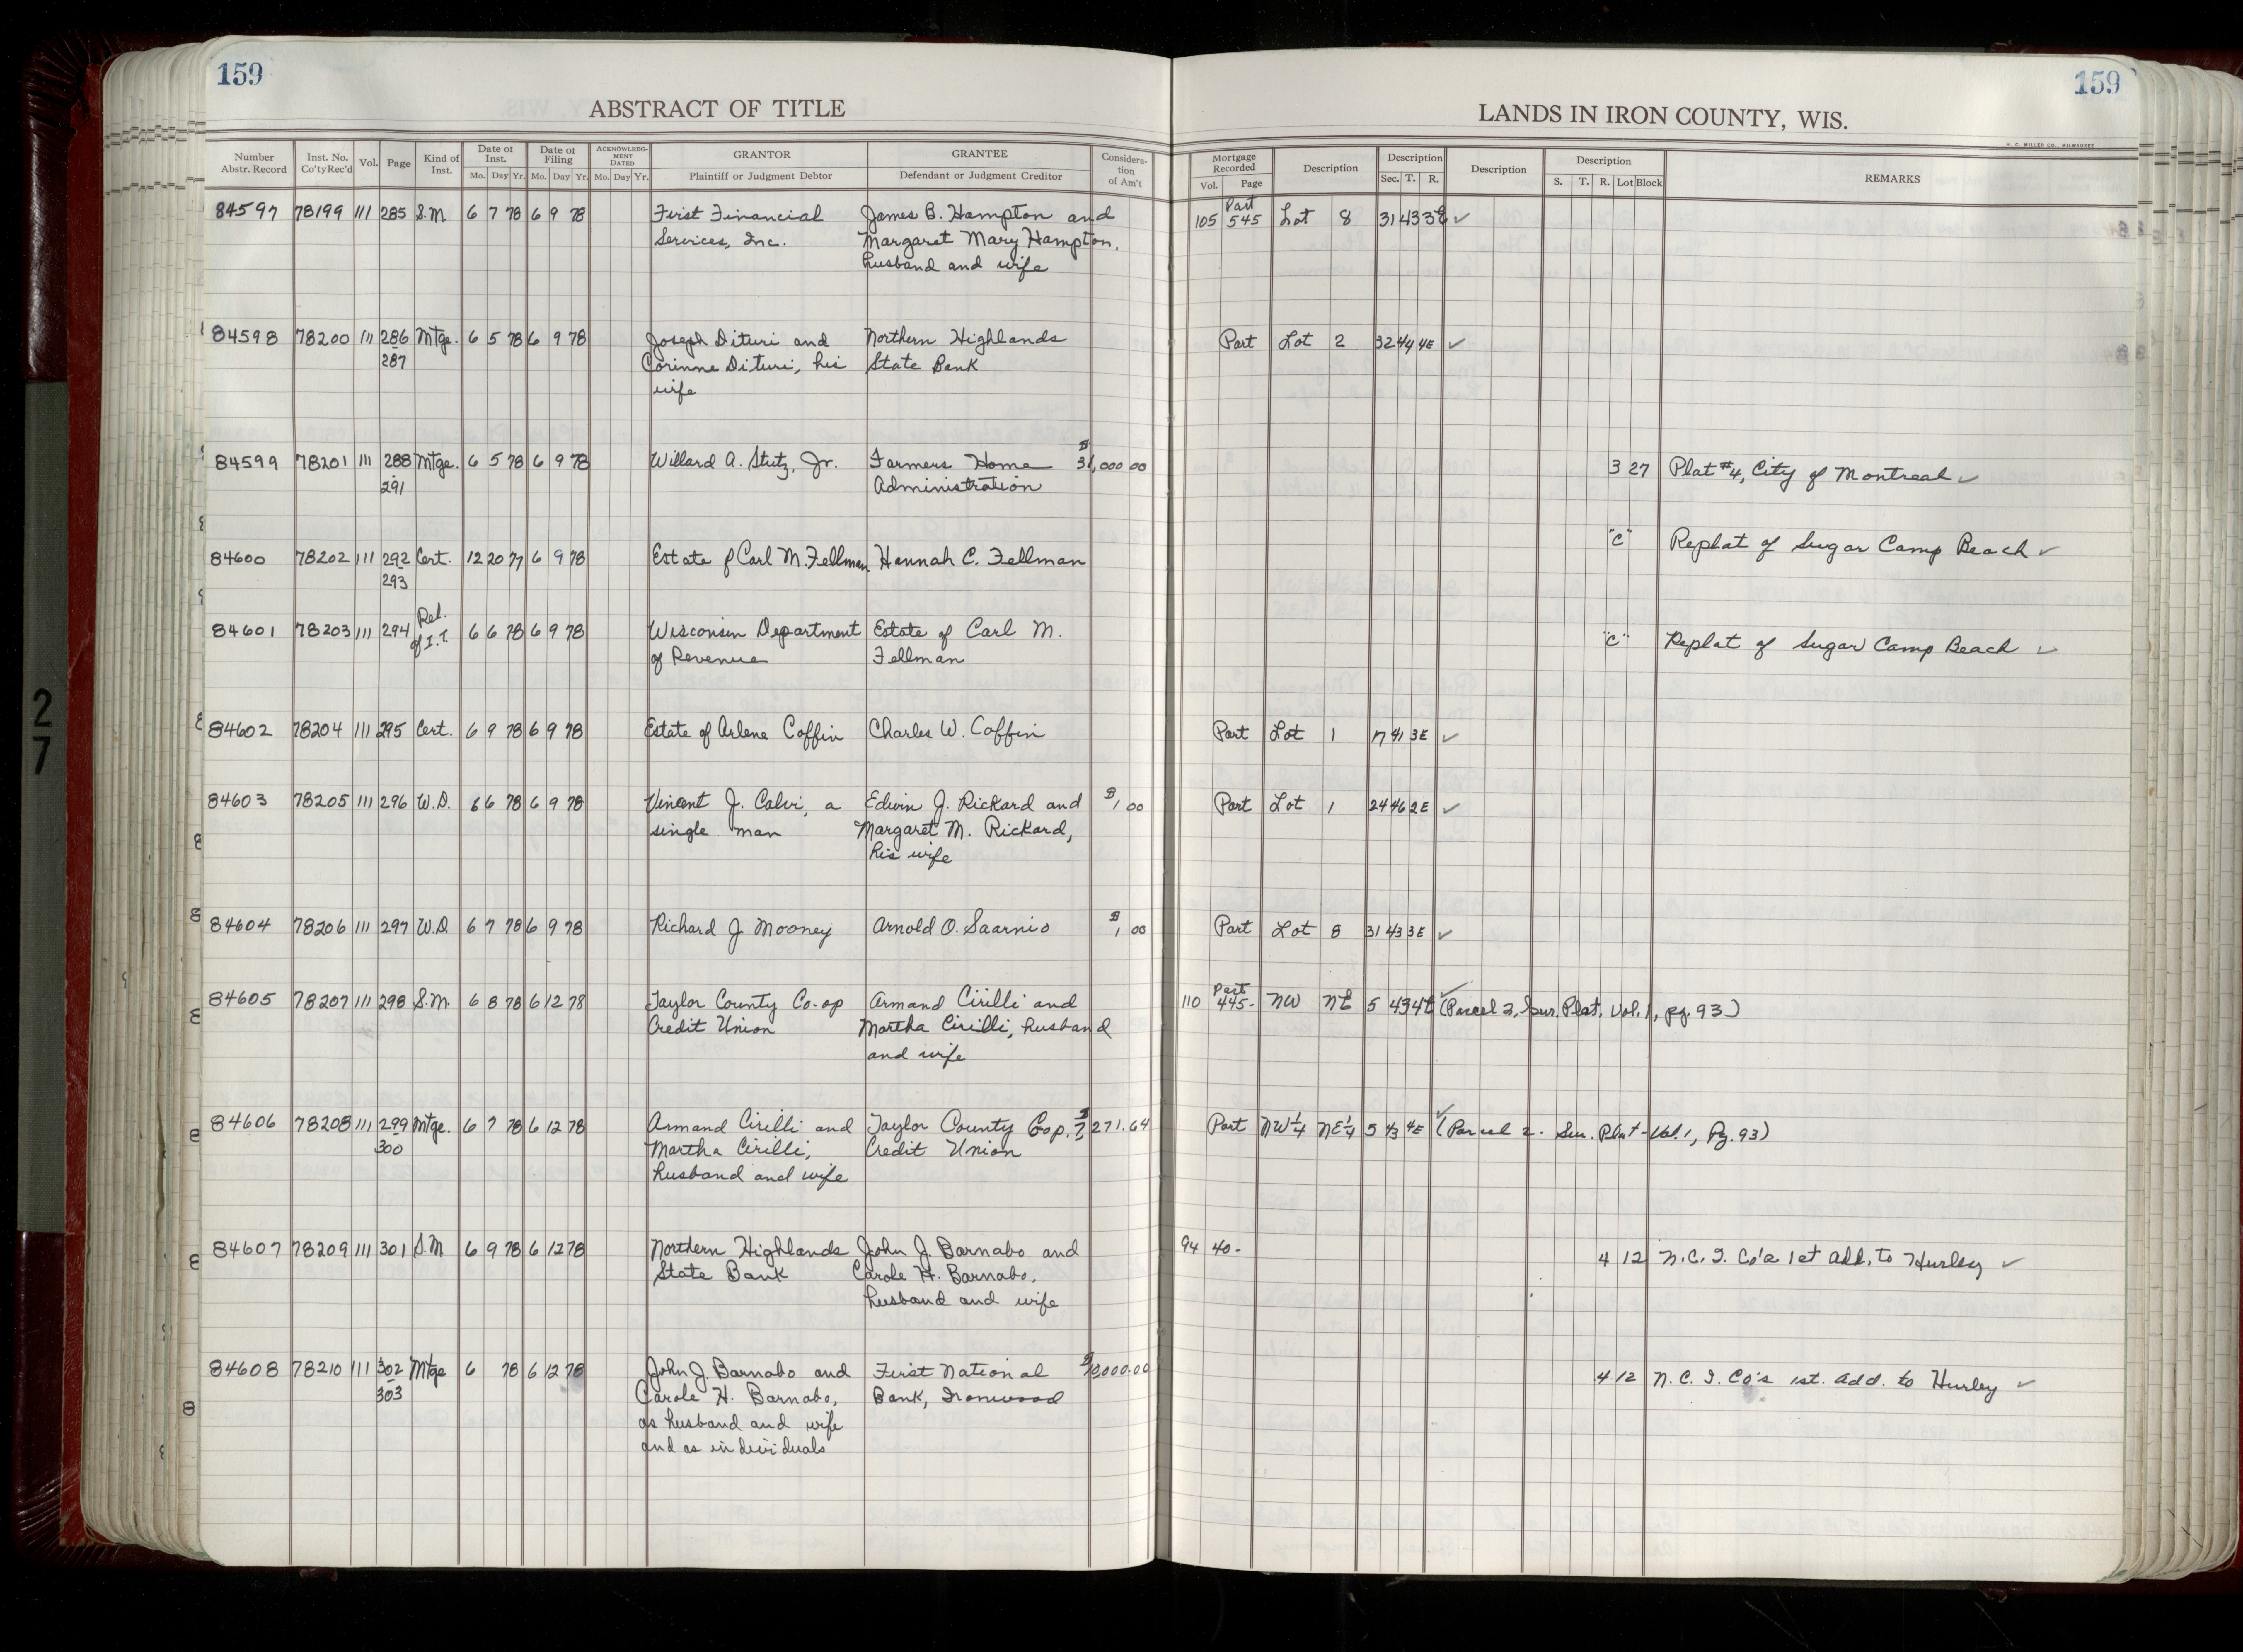 159
159
ABSTRACT OF TITLE
LANDS IN IRON COUNTY, WIS.
H. C. MILLER CO., MILWAUKEE
Number Abstr. Record Inst. No. Co'ty Rec'd Vol. Page Kind of Inst. Date of Inst. Mo. Day Yr. Date of Filing Mo. Day Yr. ACKNOWLEDGMENT DATED Mo. Day Yr. GRANTOR Plaintiff or Judgment Debtor GRANTEE Defendant or Judgment Creditor Consideration of Am't Mortgage Recorded Vol. Page Description Description Sec. T. R. Description Description S. T. R. Lot Block REMARKS
84597 78199 111 285 S.M. 6 7 78 6 9 78 First Financial James B. Hampton and 105 Part 545 Lot 8 31 43 3E ✓
Services, Inc. Margaret Mary Hampton,
husband and wife
84598 78200 111 286 Mtge. 6 5 78 6 9 78 Joseph Dituri and Northern Highlands Part Lot 2 32 44 4E ✓
287 Corinne Dituri, his State Bank
wife
84599 78201 111 288 Mtge. 6 5 78 6 9 78 Willard A. Stutz, Jr. Farmers Home $31,000 00 3 27 Plat #4, City of Montreal ✓
291 Administration
84600 78202 111 292 Cert. 12 20 77 6 9 78 Estate of Carl M. Fellman Hannah C. Fellman "C" Replat of Sugar Camp Beach ✓
293
84601 78203 111 294 Rel. of I.T. 6 6 78 6 9 78 Wisconsin Department Estate of Carl M. "C" Replat of Sugar Camp Beach ✓
of Revenue Fellman
84602 78204 111 295 Cert. 6 9 78 6 9 78 Estate of Arlene Coffin Charles W. Coffin Part Lot 1 17 41 3E ✓
84603 78205 111 296 W.D. 6 6 78 6 9 78 Vincent J. Calvi, a Edwin J. Rickard and $1 00 Part Lot 1 24 46 2E ✓
single man Margaret M. Rickard,
his wife
84604 78206 111 297 W.D. 6 7 78 6 9 78 Richard J Mooney Arnold O. Saarnio $1 00 Part Lot 8 31 43 3E ✓
84605 78207 111 298 S.M. 6 8 78 6 12 78 Taylor County Co-op Armand Cirilli and 110 Part 445- NW NE 5 43 4E ✓ (Parcel 2, Sur. Plat, Vol. 1, pg. 93)
Credit Union Martha Cirilli, husband
and wife
84606 78208 111 299 Mtge. 6 7 78 6 12 78 Armand Cirilli and Taylor County Cop. $7,271.64 Part NW¼ NE¼ 5 43 4E ✓ (Parcel 2 - Sur. Plat - Vol. 1, Pg. 93)
300 Martha Cirilli, Credit Union
husband and wife
84607 78209 111 301 S.M 6 9 78 6 12 78 Northern Highlands John J. Barnabo and 94 40- 4 12 N.C.I. Co's 1st Add. to Hurley ✓
State Bank Carole H. Barnabo,
husband and wife
84608 78210 111 302 Mtge 6 78 6 12 78 John J. Barnabo and First National $12,000.00 4 12 N.C.I. Co's 1st. Add. to Hurley ✓
303 Carole H. Barnabo, Bank, Ironwood
as husband and wife
and as individuals
27